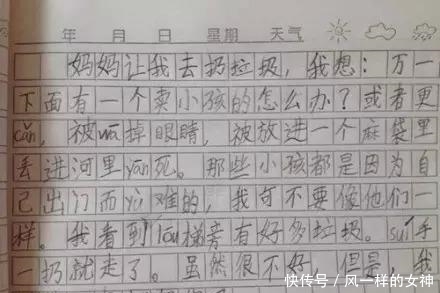 年 月 日 星期 天气
妈妈让我去扔垃圾，我想：万一
下面有一个卖小孩的怎么办？或者更
cǎn，被wā掉眼睛，被放进一个麻袋里
丢进河里yān死。那些小孩都是因为自
己出门而yù难的，我可不要像他们一
样。我看到lóu梯旁有好多垃圾。suí手
一扔就走了。虽然很不好，但是，我
快传号/风一样的女神